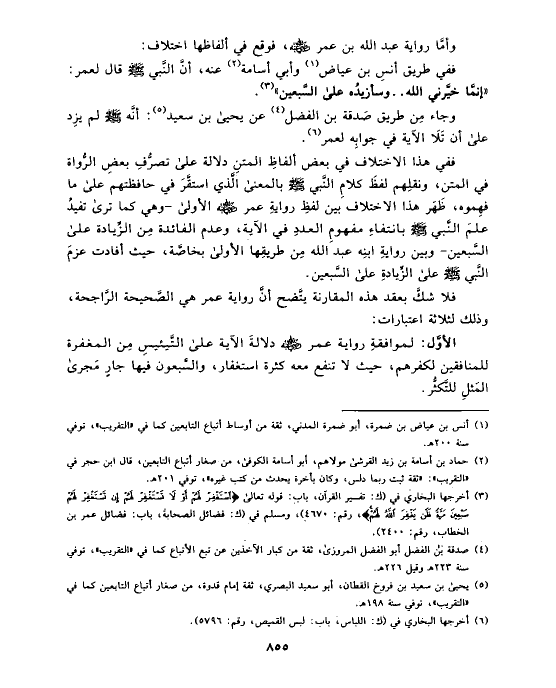 وأمَّا رواية عبد الله بن عمر ﷺ، فوقع في ألفاظها اختلاف:
ففي طريق أنس بن عياض(١) وأبي أسامة(٢) عنه، أنَّ النَّبي ﷺ قال لعمر:
«إنمَّا خيَّرني الله.. وسأزيدُه على السَّبعين»(٣).
وجاء مِن طريق صَدقة بن الفضل(٤) عن يحيىٰ بن سعيد(٥): أنَّه ﷺ لم يزِد
علىٰ أن تَلَا الآية في جوابِه لعمر(٦).
ففي هذا الاختلاف في بعض ألفاظِ المتنِ دلالة علىٰ تصرُّفِ بعضِ الرُّواة
في المتن، ونقلِهم لفظَ كلامِ النَّبي ﷺ بالمعنىٰ الَّذي استقرَّ في حافظتهم علىٰ ما
فهِموه، ظَهَر هذا الاختلاف بين لفظِ روايةِ عمر الأولىٰ -وهي كما ترىٰ تفيدُ
علمَ النَّبي ﷺ بانتفاءِ مفهومِ العددِ في الآية، وعدم الفائدة مِن الزِّيادة علىٰ
السَّبعين- وبين روايةِ ابنِه عبد الله مِن طريقِها الأولىٰ بخاصَّة، حيث أفادت عزمَ
النَّبي ﷺ علىٰ الزِّيادةِ علىٰ السَّبعين.
فلا شكَّ بعقد هذه المقارنة يتَّضح أنَّ رواية عمر هي الصَّحيحة الرَّاجحة،
وذلك لثلاثة اعتبارات:
الأوَّل: لموافقةِ رواية عمر دلالةَ الآية علىٰ التَّيئيسِ مِن المغفرة
للمنافقين لكفرهم، حيث لا تنفع معه كثرة استغفار، والسَّبعون فيها جارٍ مَجرىٰ
المَثلِ للتَّكثُّر.
(١) أنس بن عياض بن ضمرة، أبو ضمرة المدني، ثقة من أوساط أتباع التابعين كما في «التقريب»، توفي
سنة ٢٠٠هـ.
(٢) حماد بن أسامة بن زيد القرشي مولاهم، أبو أسامة الكوفي، من صغار أتباع التابعين، قال ابن حجر في
«التقريب»: «ثقة ثبت ربما دلس، وكان بأخرة يحدث من كتب غيره»، توفي ٢٠١هـ.
(٣) أخرجها البخاري في (ك: تفسير القرآن، باب: قوله تعالىٰ ﴿ٱسْتَغْفِرْ لَهُمْ أَوْ لَا تَسْتَغْفِرْ لَهُمْ إِن تَسْتَغْفِرْ لَهُمْ
سَبْعِينَ مَرَّةً فَلَن يَغْفِرَ ٱللَّهُ لَهُمْ﴾، رقم: ٤٦٧٠)، ومسلم في (ك: فضائل الصحابة، باب: فضائل عمر بن
الخطاب، رقم: ٢٤٠٠).
(٤) صدقة بن الفضل أبو الفضل المروزي، ثقة من كبار الآخذين عن تبع الأتباع كما في «التقريب»، توفي
سنة ٢٢٣هـ وقيل ٢٢٦هـ.
(٥) يحيىٰ بن سعيد بن فروخ القطان، أبو سعيد البصري، ثقة إمام قدوة، من صغار أتباع التابعين كما في
«التقريب»، توفي سنة ١٩٨هـ.
(٦) أخرجها البخاري في (ك: اللباس، باب: لبس القميص، رقم: ٥٧٩٦).
٨٥٥